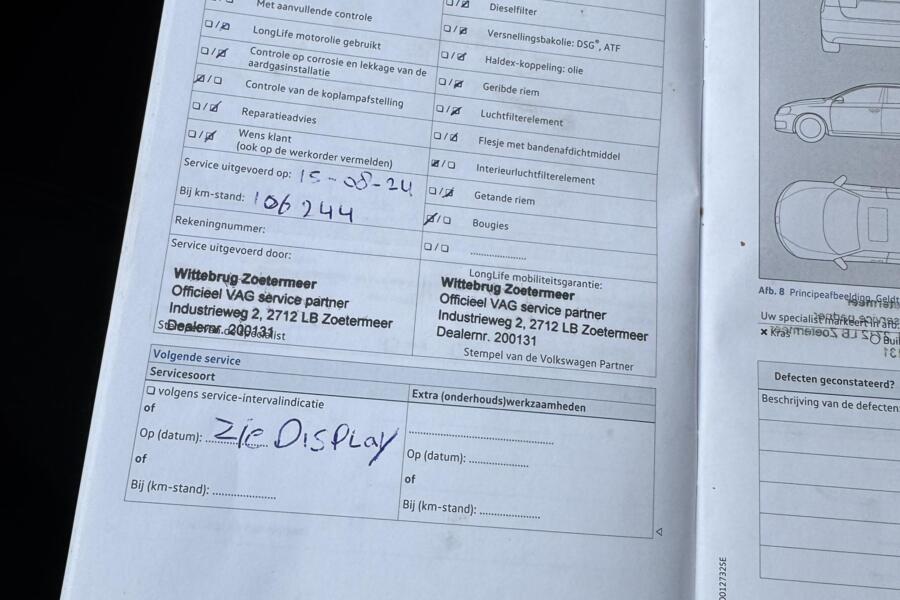 Met aanvullende controle
LongLife motorolie gebruikt
Controle op corrosie en lekkage van de
aardgasinstallatie
Controle van de koplampafstelling
Reparatieadvies
Wens klant
(ook op de werkorder vermelden)
Service uitgevoerd op: 15-08-24
Bij km-stand: 106244
Rekeningnummer:
Service uitgevoerd door:
Wittebrug Zoetermeer
Officieel VAG service partner
Industrieweg 2, 2712 LB Zoetermeer
Dealernr. 200131
Dieselfilter
Versnellingsbakolie: DSG®, ATF
Haldex-koppeling: olie
Geribde riem
Luchtfilterelement
Flesje met bandenafdichtmiddel
Interieurluchtfilterelement
Getande riem
Bougies
LongLife mobiliteitsgarantie:
Wittebrug Zoetermeer
Officieel VAG service partner
Industrieweg 2, 2712 LB Zoetermeer
Dealernr. 200131
Stempel van de Volkswagen Partner
Volgende service
Servicesoort
volgens service-intervalindicatie
of
Op (datum): Zie Display
of
Bij (km-stand):
Extra (onderhouds)werkzaamheden
Op (datum):
of
Bij (km-stand):
Afb. 8 Principeafbeelding. Geldt
Uw specialist markeert in afb.
Kras
Defecten geconstateerd?
Beschrijving van de defecten: